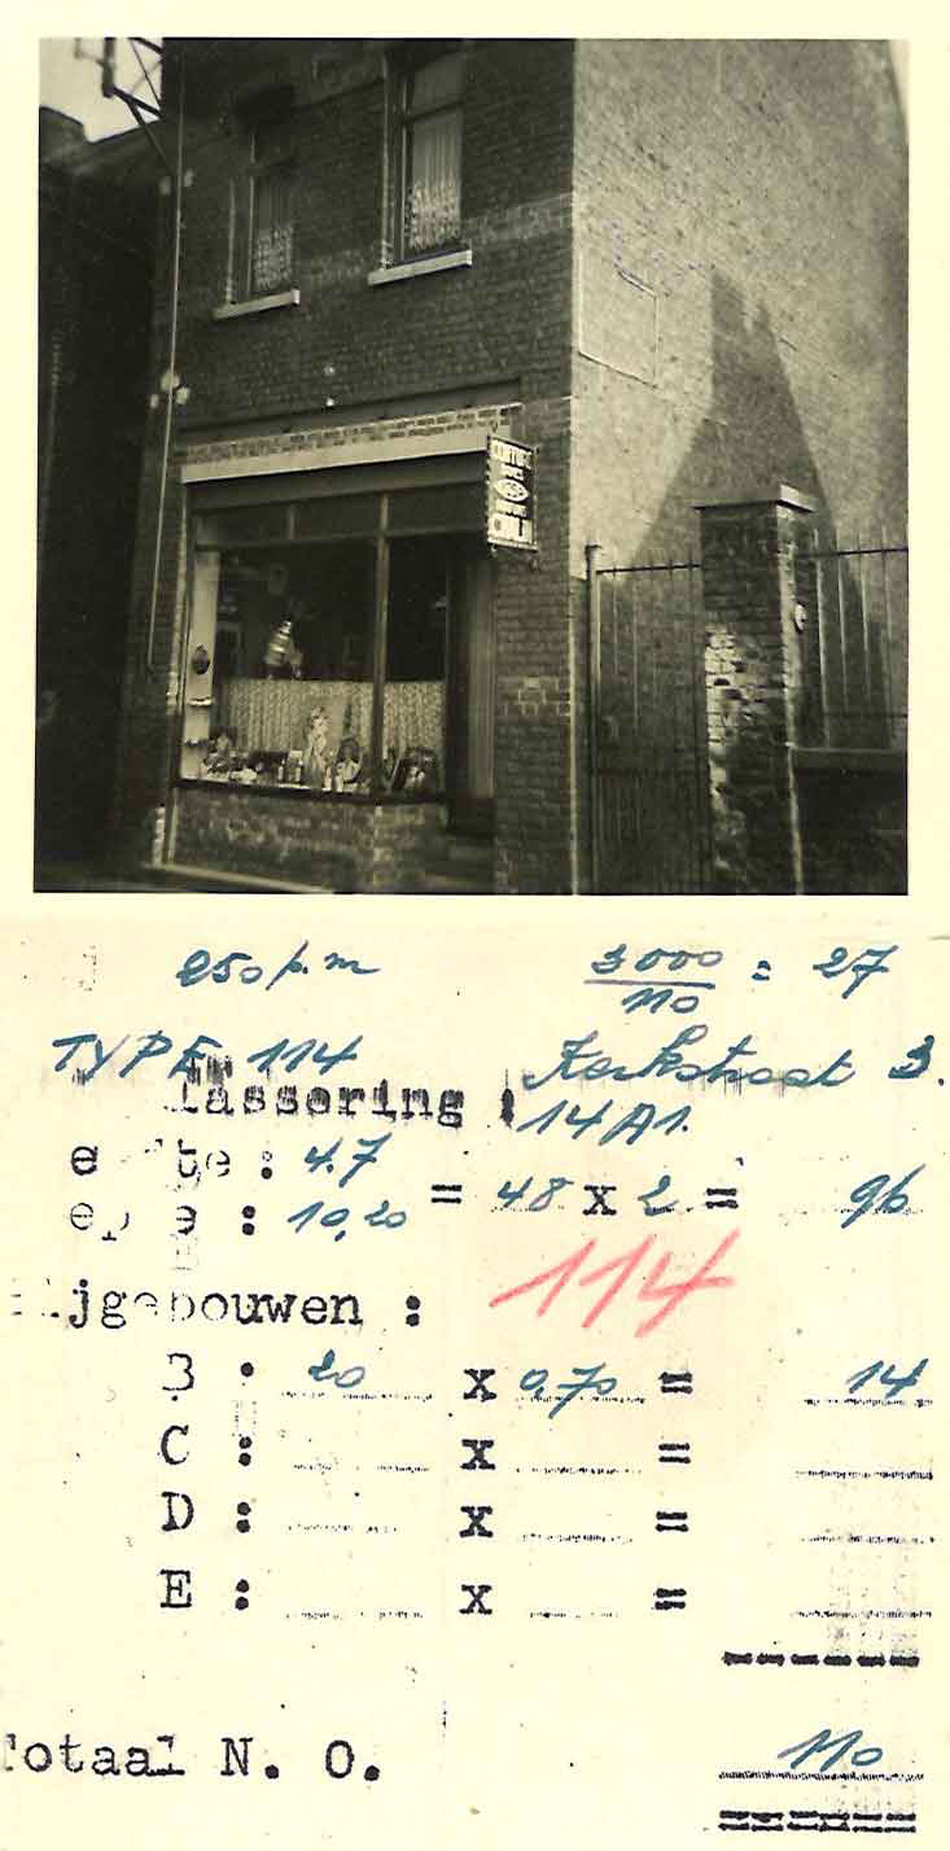 250 p.m 3000/110 = 27
TYPE 114 Kerkstraat 3.
lassering : 14 A1.
e te : 4.7
e : 10,20 = 48 x 2 = 96
jgebouwen : 114
B : 20 x 0,70 = 14
C : x =
D : x =
E : x =
Totaal N. O. 110